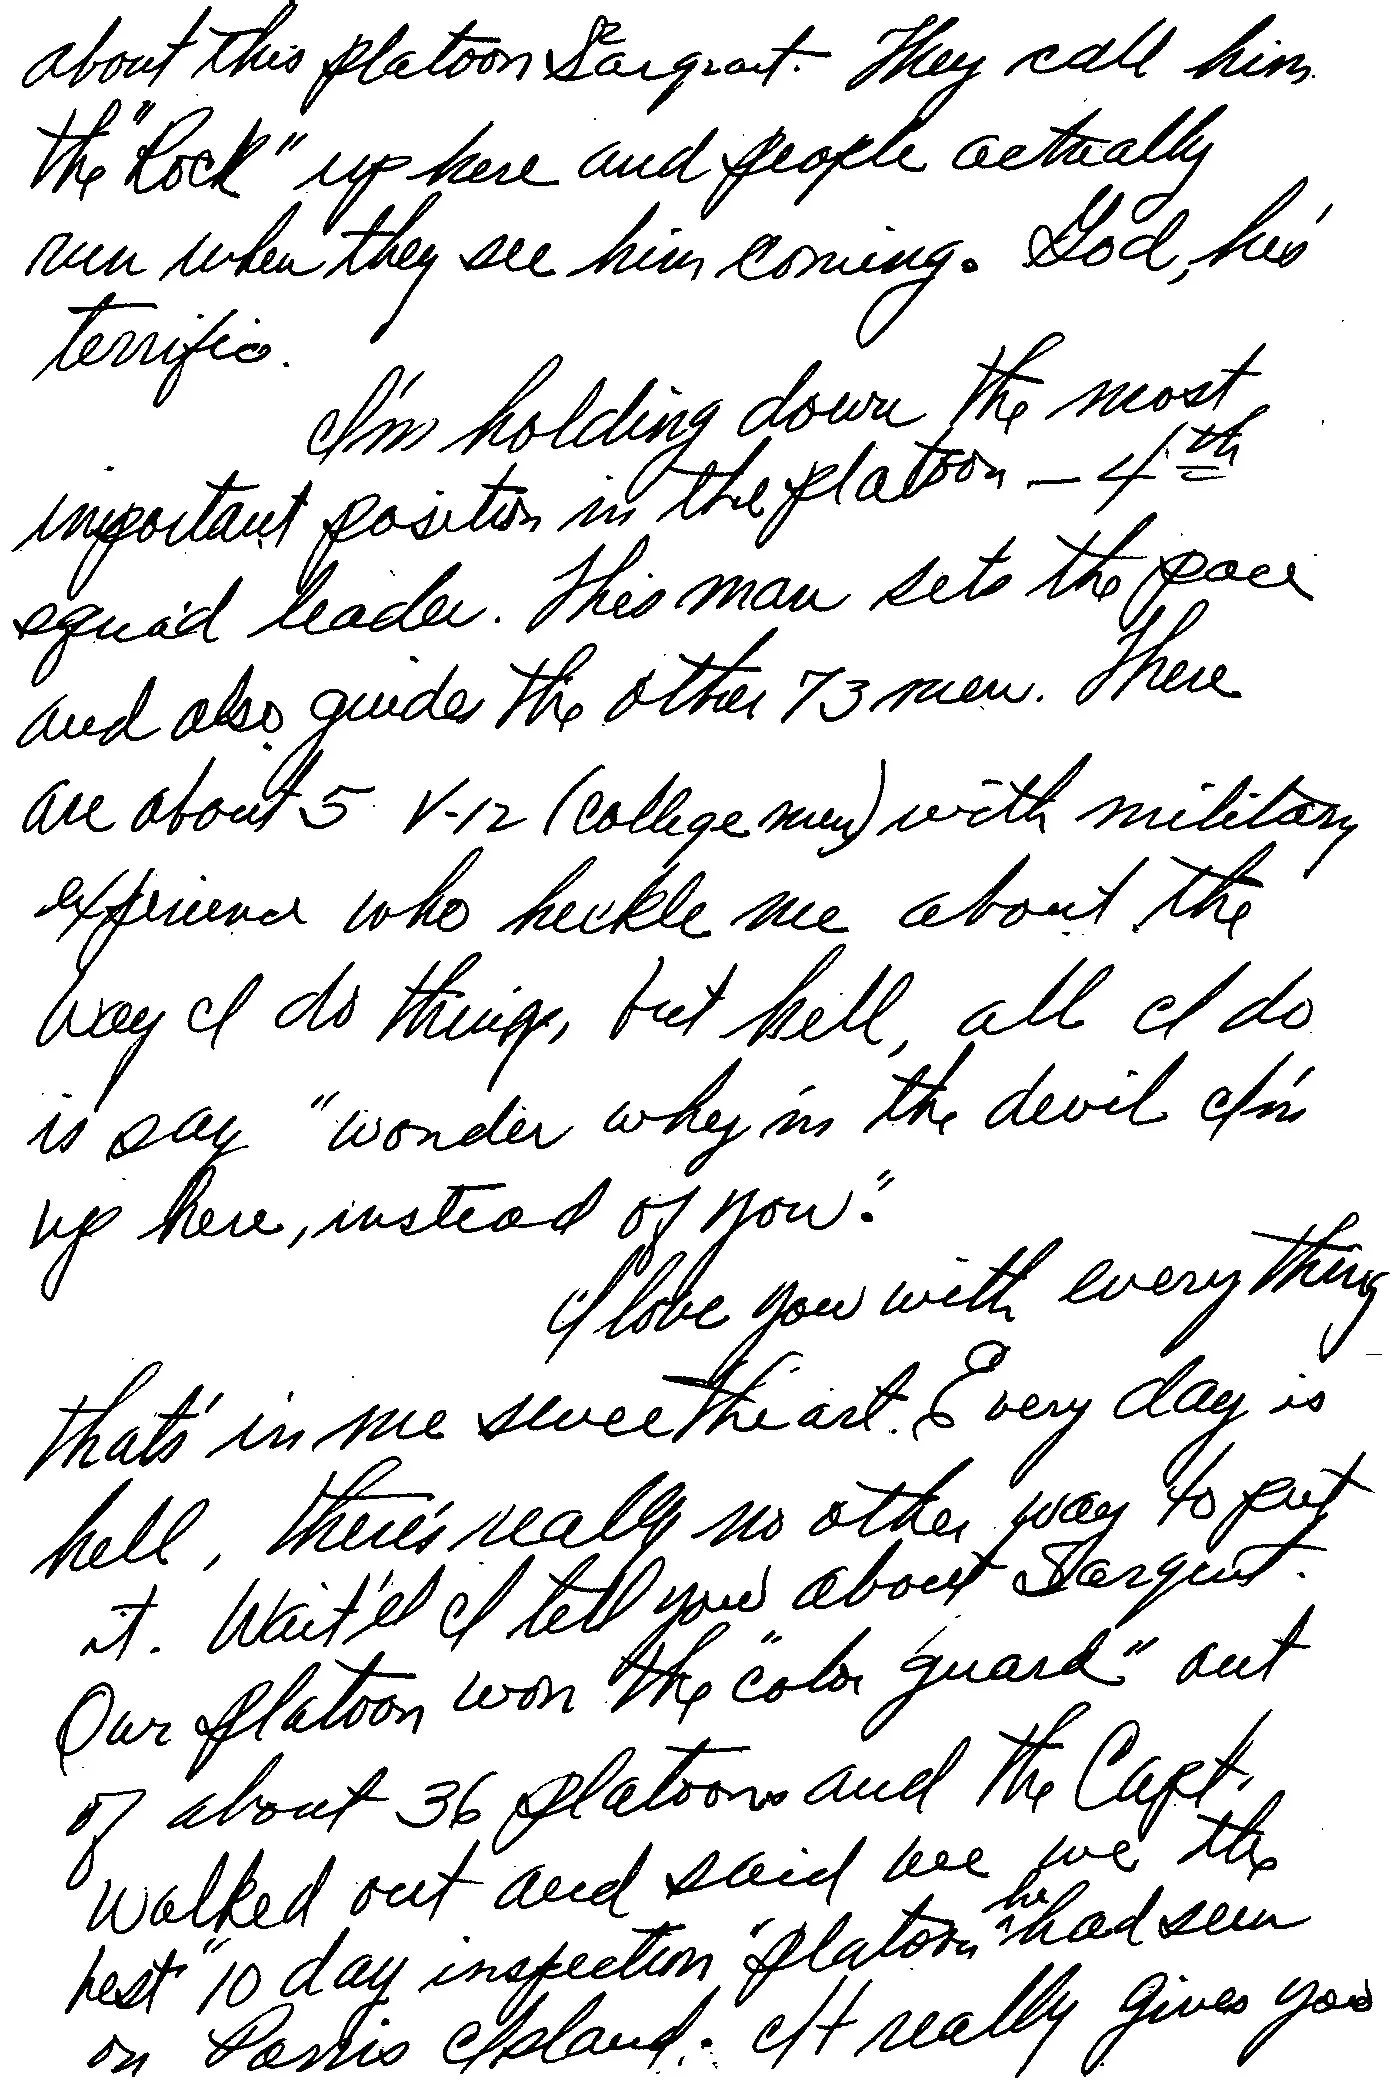 about this platoon Seargent. They call him
the "Rock" up here and people actually
run when they see him coming. God, he's
terrific.
I'm holding down the most
important position in the platoon - 4th
squad leader. This man sets the pace
and also guides the other 73 men. There
are about 5 V-12 (college men) with military
experience who heckle me about the
way I do things, but hell, all I do
is say "wonder why in the devil I'm
up here, instead of you."
I love you with everything
that's in me sweetheart. Every day is
hell, there's really no other way to put
it. Wait'll I tell you about Sargent.
Our platoon won the "color guard" out
of about 36 platoons and the Capt.
walked out and said we we the
best "10 day inspection" platoon he had seen
on Parris Island. It really gives you